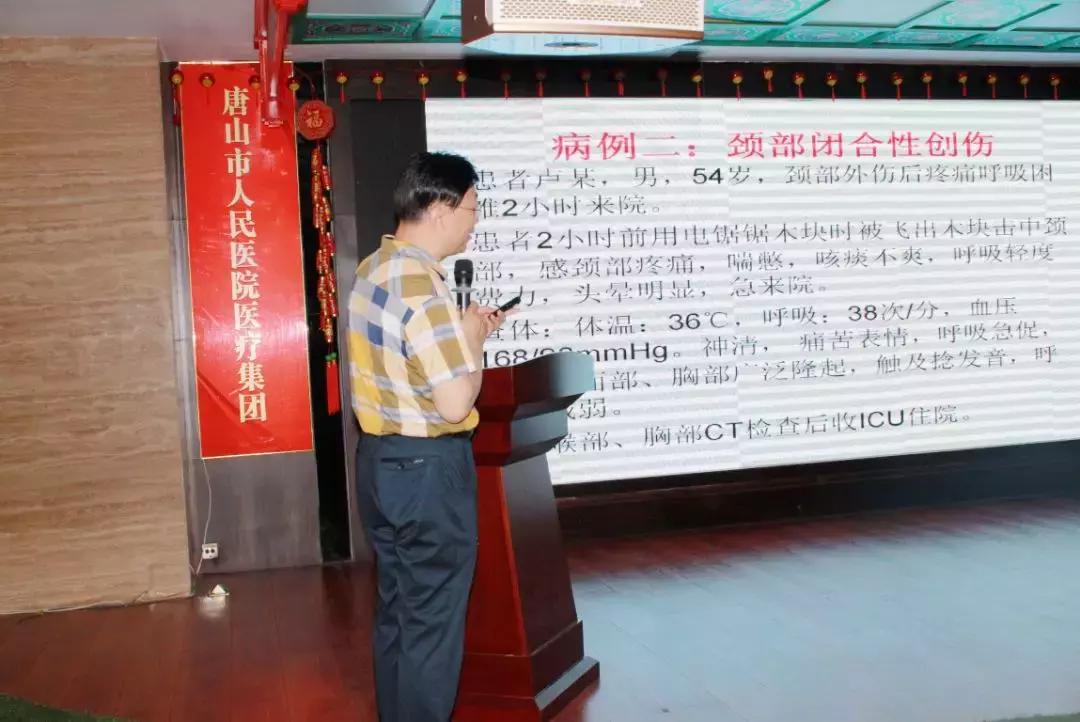 唐山市人民医院医疗集团
福
病例二：颈部闭合性创伤
患者卢某，男，54岁，颈部外伤后疼痛呼吸困
难2小时来院。
患者2小时前用电锯锯木块时被飞出木块击中颈
部，感颈部疼痛，喘憋，咳痰不爽，呼吸轻度
费力，头晕明显，急来院。
查体：体温：36℃，呼吸：38次/分，血压
168/98mmHg。神清，痛苦表情，呼吸急促，
面部、胸部广泛隆起，触及捻发音，呼
弱。
喉部、胸部CT检查后收ICU住院。